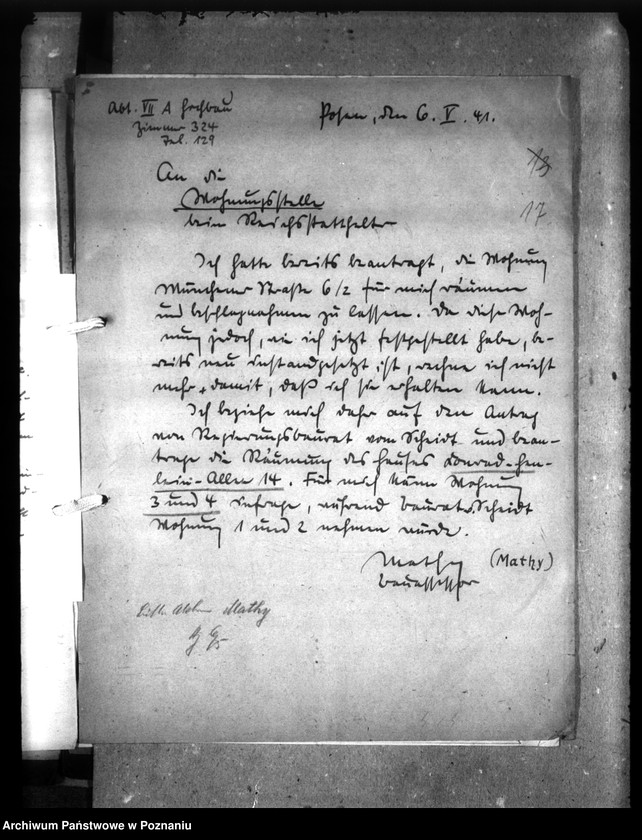 Abt. VII A Hochbau
Zimmer 324
Tel. 129
Posen, den 6. V. 41.
13
17
An die
Wohnungsstelle
beim Reichsstatthalter
Ich hatte bereits beantragt, die Wohnung
Münchener Straße 6/2 für mich räumen
und beschlagnahmen zu lassen. Da diese Woh-
nung jedoch, wie ich jetzt festgestellt habe, be-
reits neu instandgesetzt ist, rechne ich nicht
mehr damit, daß ich sie erhalten kann.
Ich beziehe mich daher auf den Antrag
von Regierungsbaurat vom Scheidt und bean-
trage die Räumung des Hauses Konrad-Hen-
lein-Allee 14. Für mich käme Wohnung
3 und 4 infrage, während Baurat v. Scheidt
Wohnung 1 und 2 nehmen würde.
Mathy (Mathy)
Bauassessor
Mathy
Archiwum Państwowe w Poznaniu